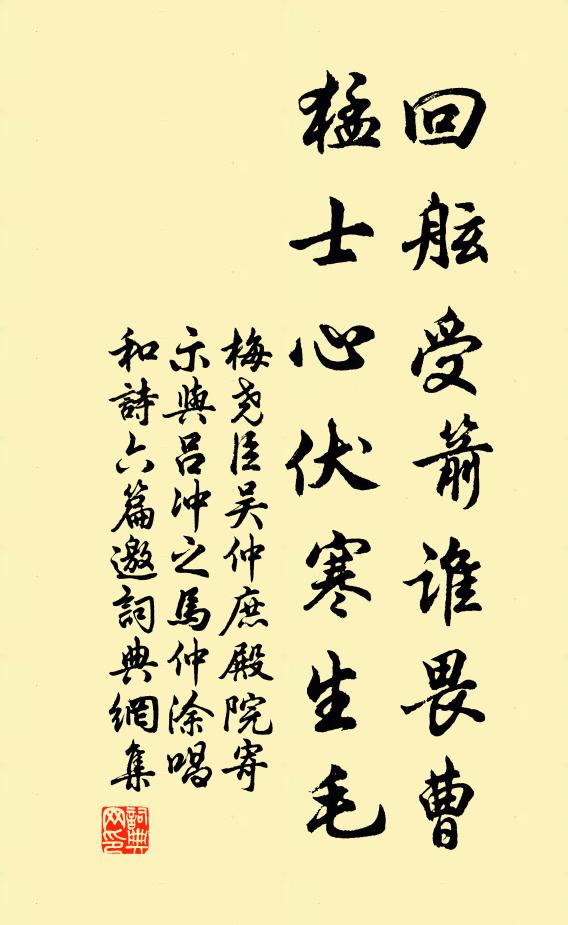 回舷受箭谁畏曹
猛士心伏寒生毛
梅尧臣吴仲庶殿院寄
示與吕冲之馬仲涂唱
和詩六篇邀詞典網集
詞典
网印